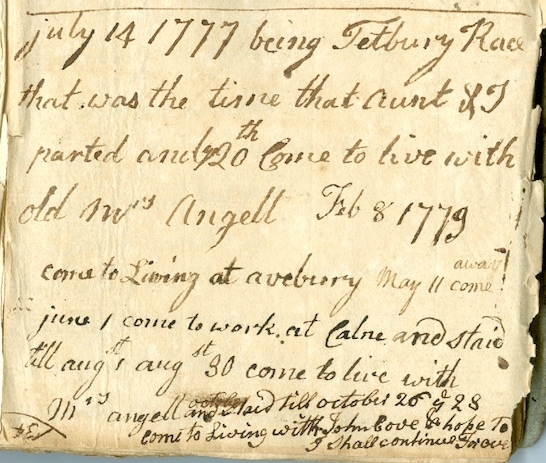 july 14 1777 being Tetbury Race
that was the time that aunt & I
parted and y 20th Come to live with
old Mrs Angell Feb 8 1779
come to Living at avebury May 11 come away
june 1 come to work at Calne and staid
till augst 1 augst 30 come to live with
Mrs angell and staid till october 26 y 28
come to Living with John Cove & hope To
I Shall continue Forove